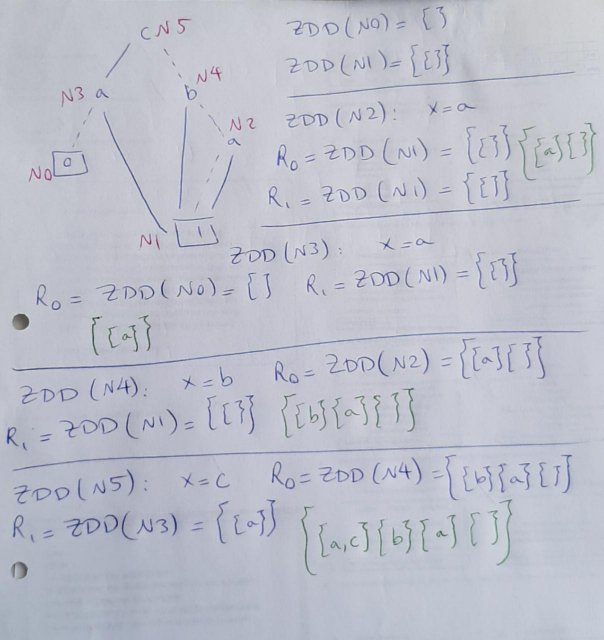 C N5
N3 a
b N4
N2
a
N0 0
N1 1
ZDD(N0) = {}
ZDD(N1) = {{}}
ZDD(N2): x=a
R₀ = ZDD(N1) = {{}} {{a}{}}
R₁ = ZDD(N1) = {{}}
ZDD(N3): x=a
R₀ = ZDD(N0) = {} R₁ = ZDD(N1) = {{}}
{{a}}
ZDD(N4): x=b R₀ = ZDD(N2) = {{a}{}}
R₁ = ZDD(N1) = {{}} {{b}{a}{}}
ZDD(N5): x=c R₀ = ZDD(N4) = {{b}{a}{}}
R₁ = ZDD(N3) = {{a}} {{a,c}{b}{a}{}}